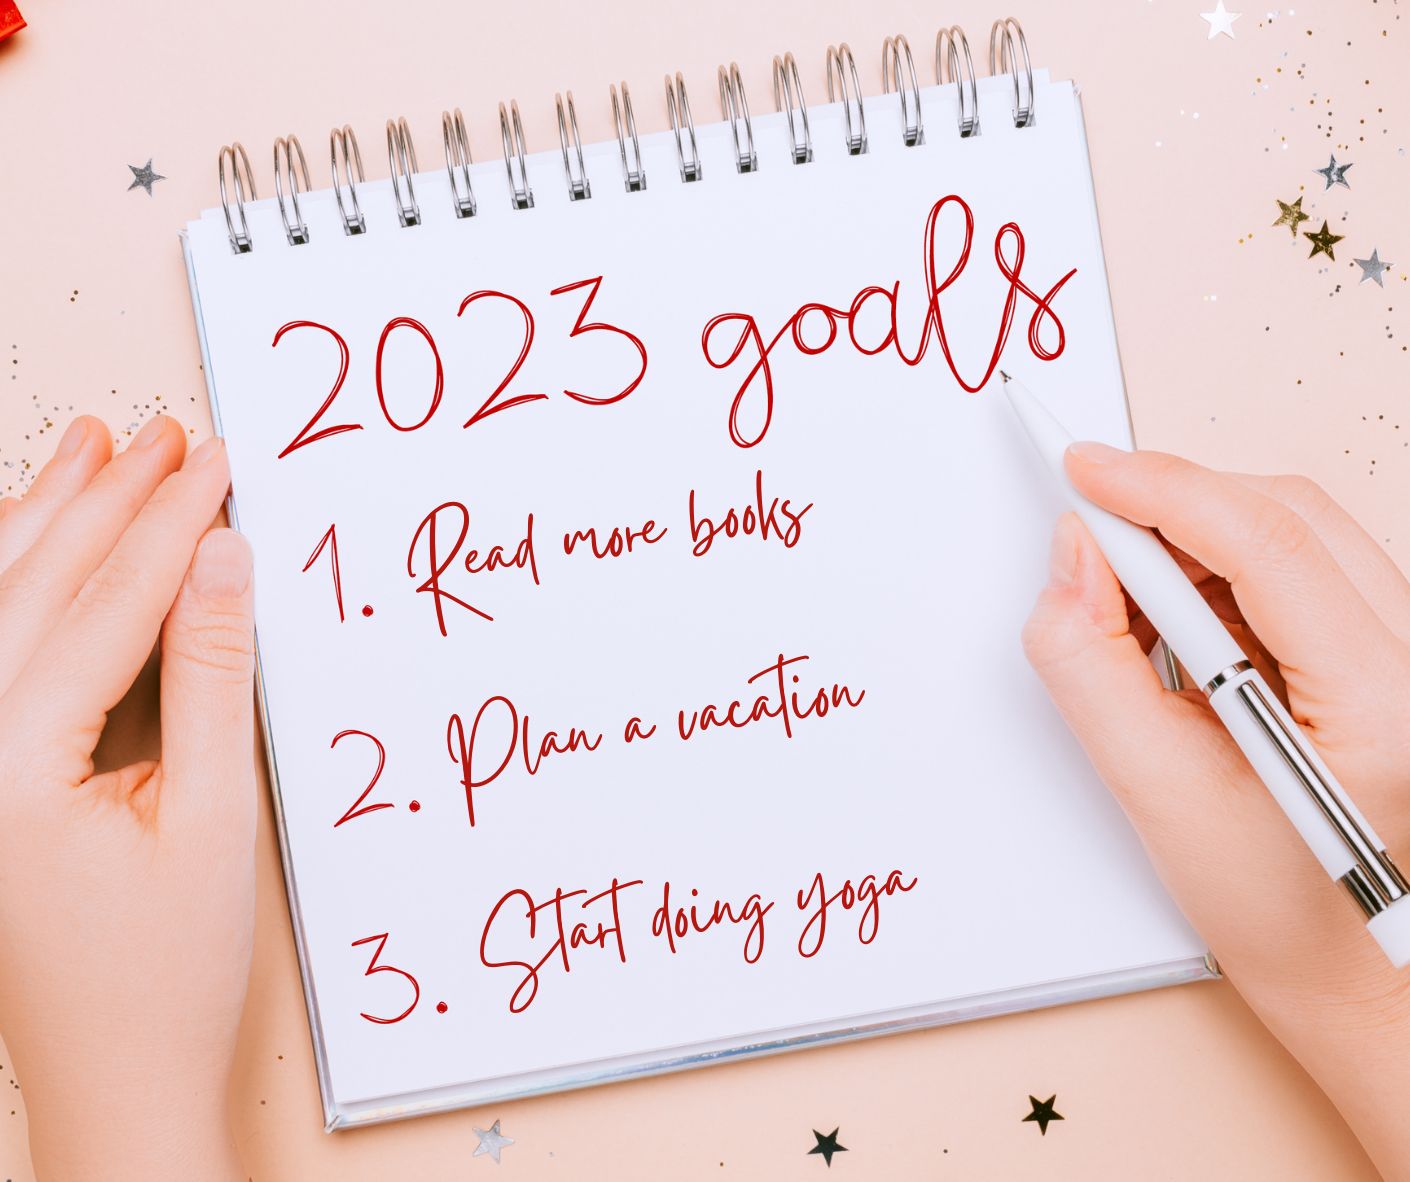 2023 goals
1. Read more books
2. Plan a vacation
3. Start doing yoga